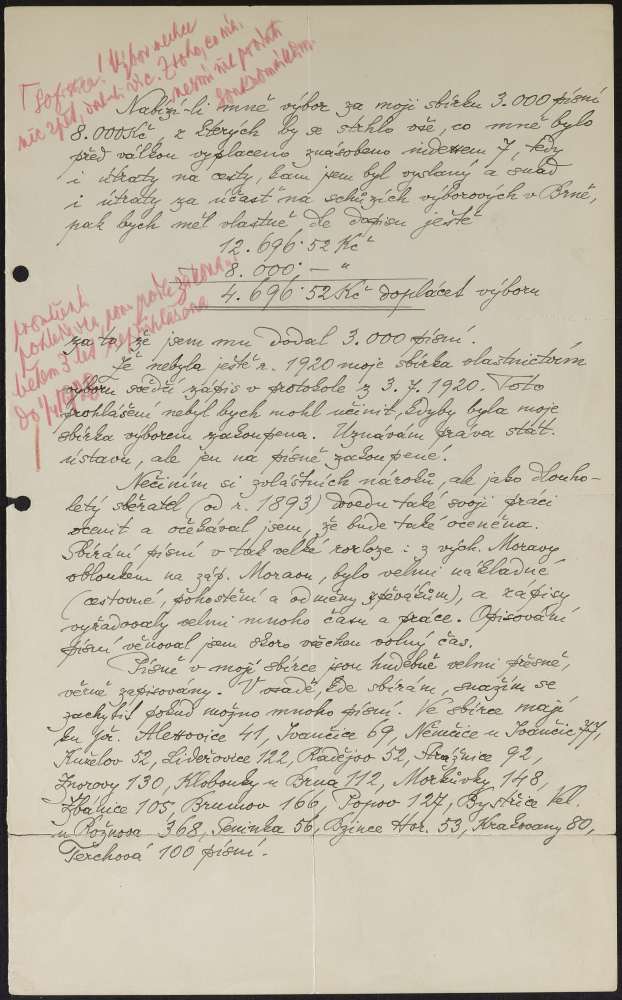 Sofisma! Výbor nechce
nic zpět, dal-li víc. Z toho, co má,
nesmí nic prodati
soukromníkům.
Nabízí-li mně výbor za moji sbírku 3.000 písní
8.000 Kč, z kterých by se strhlo vše, co mně bylo
před válkou vyplaceno znásobeno indexem 7, tedy
i útraty na cesty, kam jsem byl vyslaný a snad
i útraty za účast na schůzích výborových v Brně,
pak bych měl vlastně dle dopisu ještě
12.696·52 Kč
8.000·— "
4.696·52 Kč doplácet výboru
za to, že jsem mu dodal 3.000 písní.
Že nebyla ještě r. 1920 moje sbírka vlastnictvím
výboru svědčí zápis v protokole z 3. 7. 1920. Toto
prohlášení nebyl bych mohl učinit, kdyby byla moje
sbírka výborem zakoupena. Uznávám práva stát.
ústavu, ale jen na písně zakoupené.
podle zákona
během 3 let
do 1928
Nečiním si zvláštních nároků, ale jako dlouho-
letý sběratel (od r. 1893) dovedu také svoji práci
ocenit a očekával jsem, že bude také oceněna.
Sbírání písní v tak velké rozloze: z vých. Moravy
obloukem na záp. Moravu, bylo velmi nákladné
(cestovné, pohostění a odměny zpěvákům), a zápisy
vyžadovaly velmi mnoho času a práce. Opisování
písní věnoval jsem skoro všechen volný čas.
Písně v mojí sbírce jsou hudebně velmi přesně,
věrně zapisovány. V osadě, kde sbírám, snažím se
zachytit pokud možno mnoho písní. Ve sbírce mají
ku př. Alexovice 41, Ivančice 69, Němčice u Ivančic 77,
Kuželov 52, Lideřovice 122, Radějov 52, Strážnice 92,
Znorovy 130, Klobouky u Brna 112, Morkůvky 148,
Žbánice 105, Brumov 166, Popov 127, Bystřice Vel.
u Rožnova 368, Seninka 56, Bzince Hor. 53, Krakovany 80,
Terchová 100 písní.